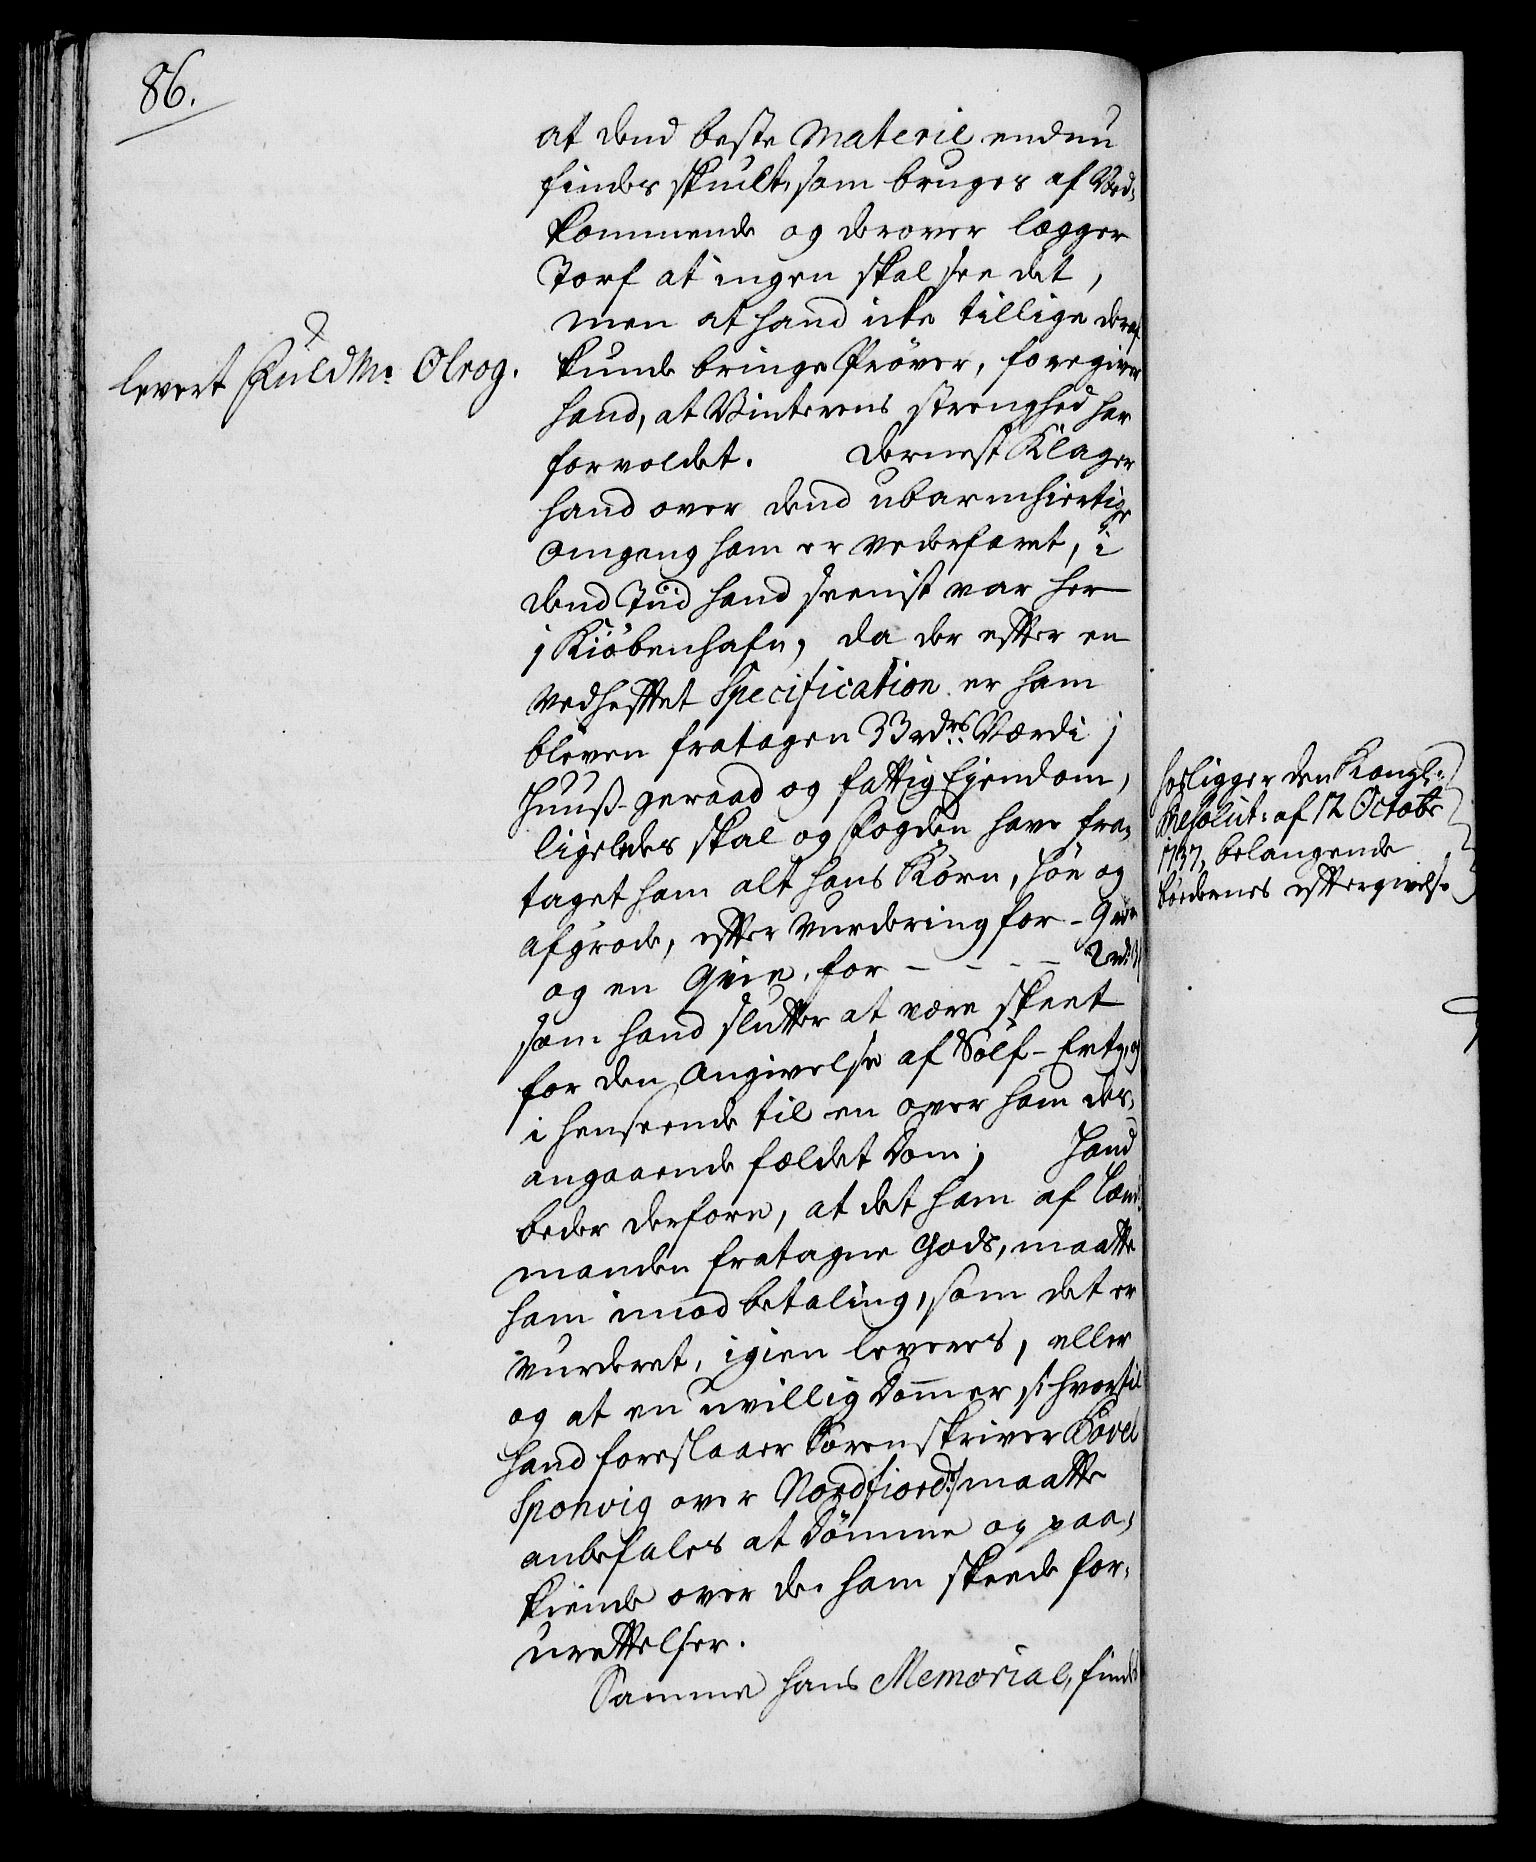 86.
at dend beste Materie endnu
findes skiult, som bruges af Ved-
kommende og derover lægger
Torf at ingen skal see det,
men at hand icke tillige deraf
levert Fuldm: Olrog.
kunde bringe Prøver, foregiver
hand, at Vinterens strenghed har
forvoldet. Dernest Klager
hand over dend ubarmhiertige
omgang ham er vederfaret, i
dend Tiid hand seenist var her
i Kiøbenhafn, da der efter en
vedhefftet Specification er ham
bleven fratagen 33 rdrs Værdi i
Huuß-geraad og fattig Ejendom,
ligeledes skal og Fogden have fra-
taget ham alt hans Korn, Høe og
afgrøde, efter Vurdering for - 9 rdr
og en Qvie, for - - - - 2 rd:
som hand slutter at være skeet
for den Angivelse af Sølf-Ertz, og
i henseende til en over ham der-
angaaende fældet Dom; Hand
beder derfore, at det ham af Lens-
manden fratagne Gods, maatte
ham imod betaling, som det er
vurderet, igien leveres, eller
og at en uvillig Dommer /: hvortil
hand foreslaaer Sorenskriver Povel
Sponvig over Nordfiord :/ maatte
anbefales at dømme og paa-
kiende over de ham skeede for-
urettelser.
Samme hans Memorial, findes
hosligger den Kongl:
Resolut: af 12 Octobr
1737, belangende
bødernes eftergivelse